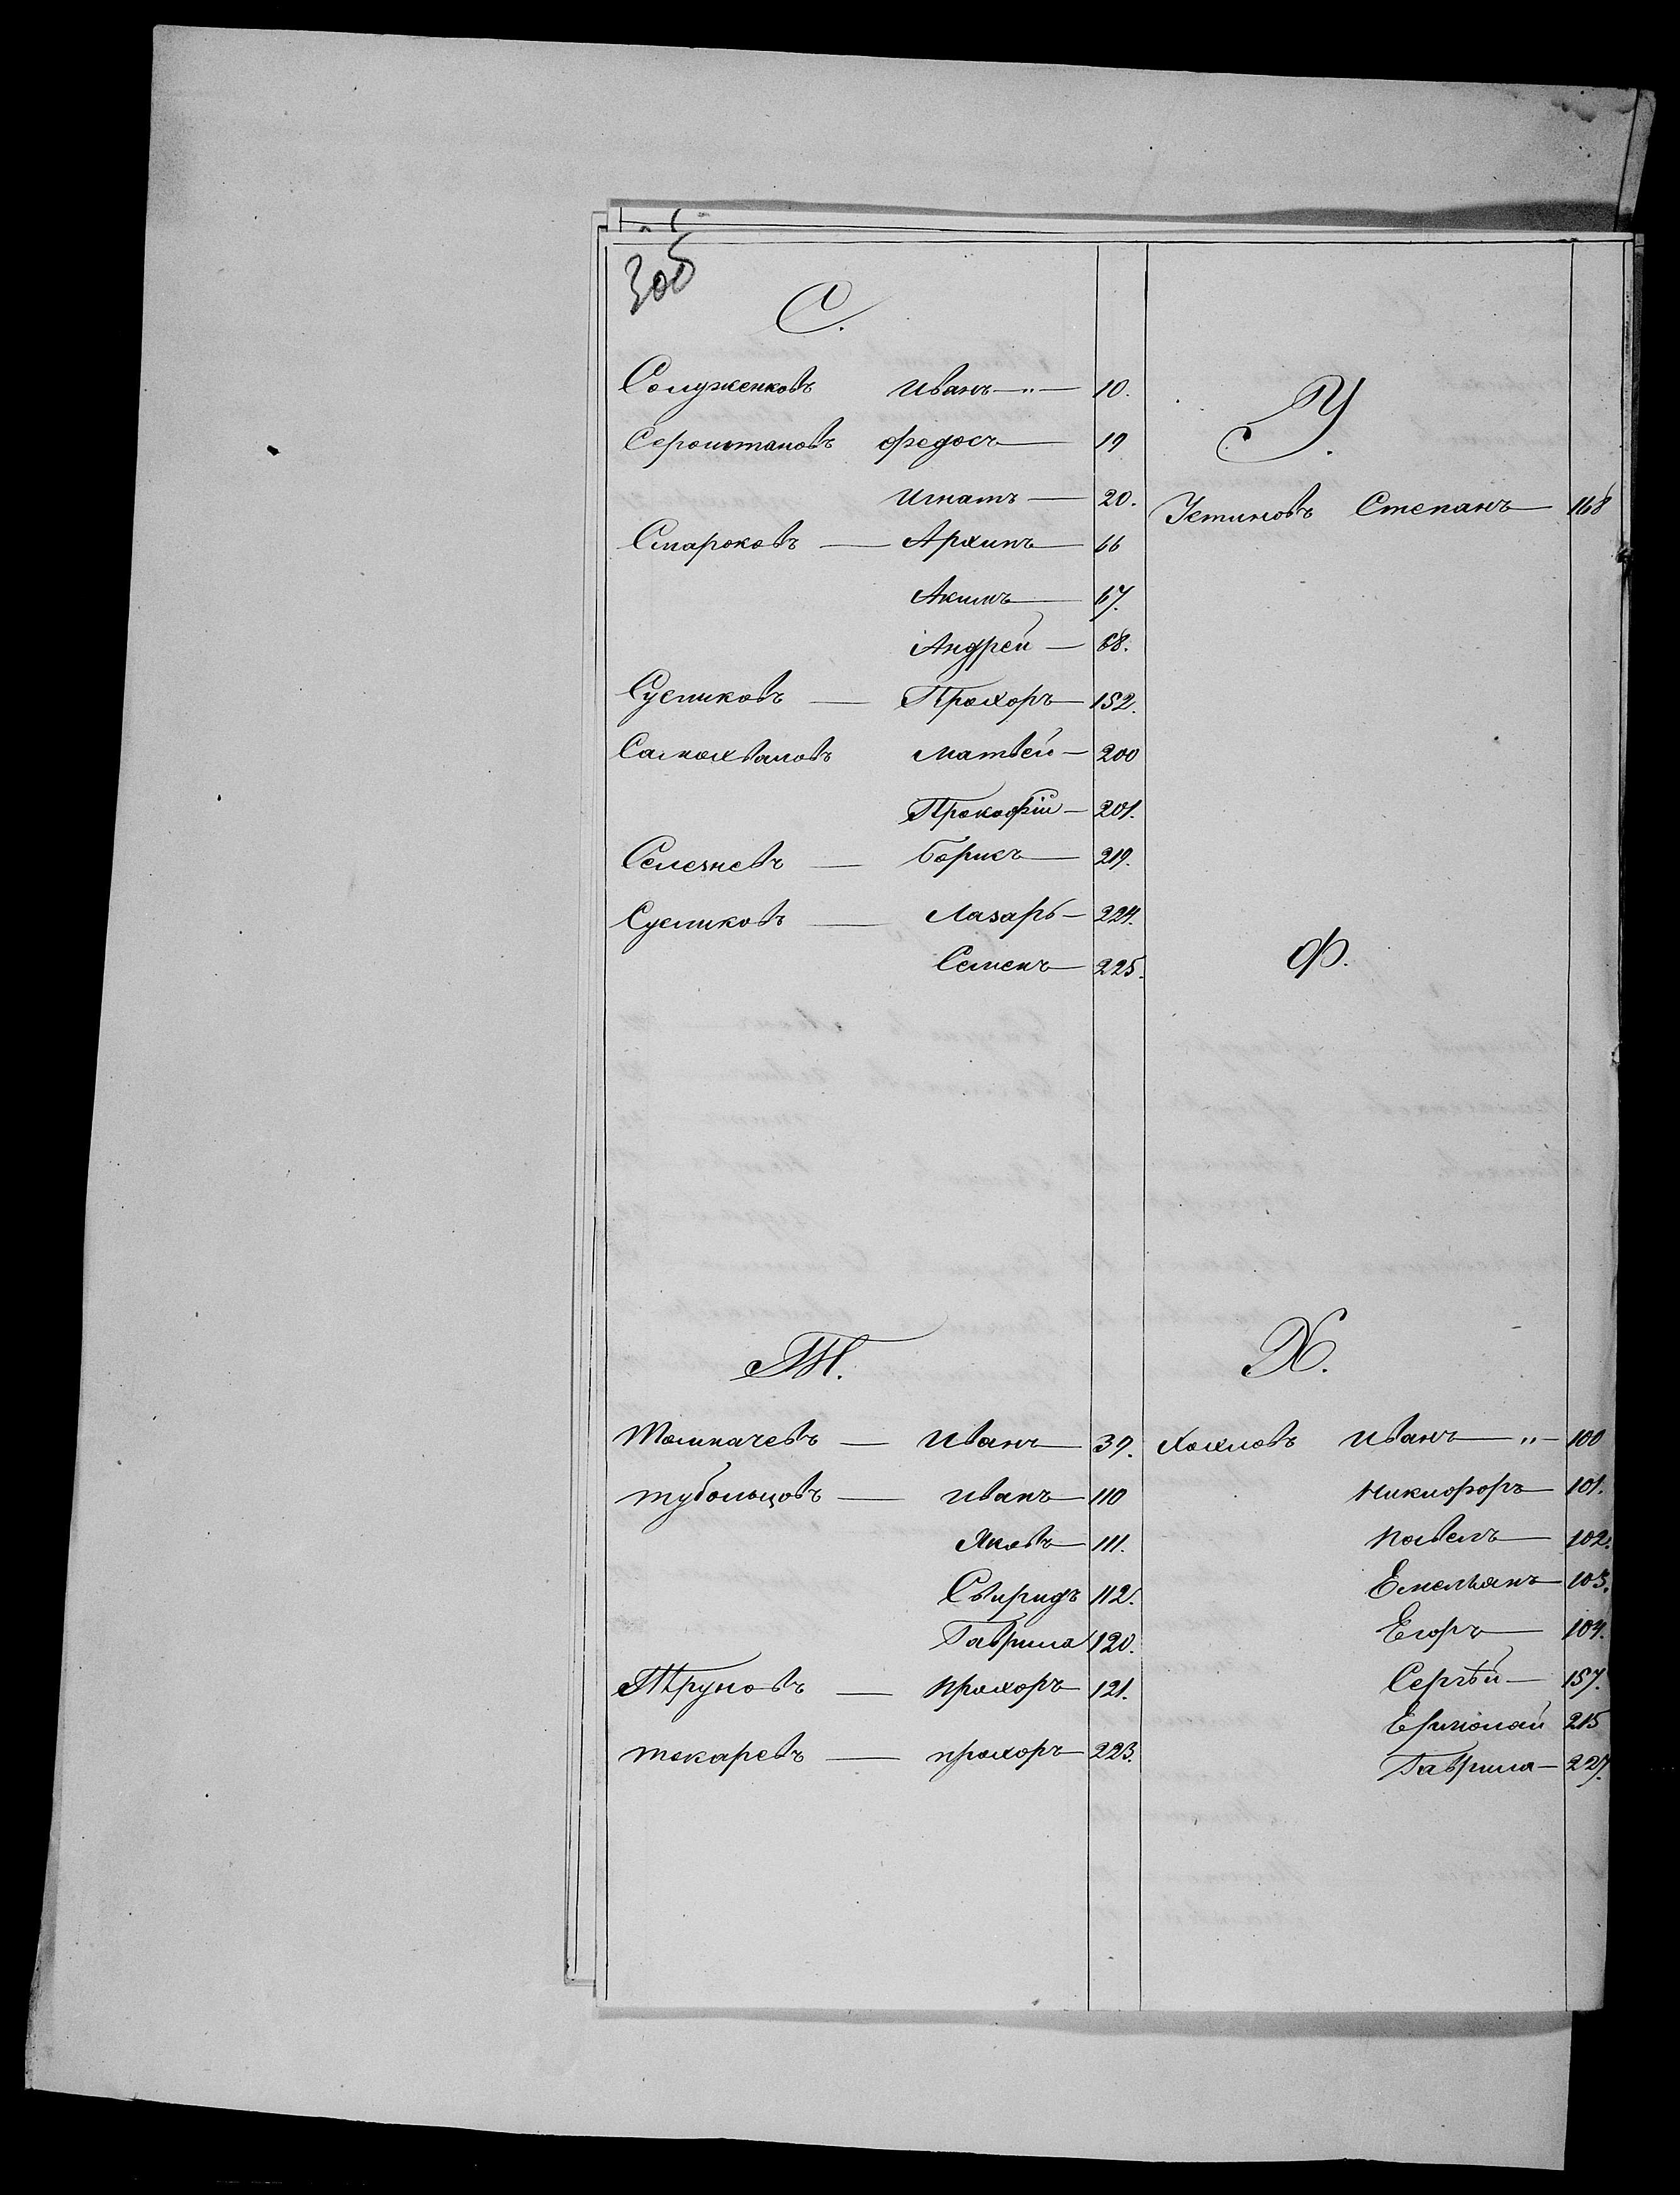 305
С.
Солуженковъ Иванъ — " — 10.
Сероштановъ Федосъ — 19
Игнатъ — 20.
Староковъ — Архипъ — 66
Акимъ — 67.
Андрей — 68.
Сусликовъ — Прохоръ — 152.
Самохваловъ Матвей — 200
Прокофій — 201.
Селезневъ — Борисъ — 219.
Сусликовъ — Лазарь — 224.
Семенъ — 225.
Т.
Толмачевъ — Иванъ — 39.
тубольцовъ — иванъ — 110
Яковъ — 111.
Свиридъ 112.
Гаврила 120.
Труновъ — прохоръ — 121.
токаревъ — прохоръ — 223.
У.
Устиновъ Степанъ — 168
Ф.
Х.
Хохловъ Иванъ — " — 100
Никифоръ — 101.
Павелъ — 102.
Емельянъ — 103.
Егоръ — 104.
Сергѣй — 157.
Ермолай 215
Гаврила — 227.